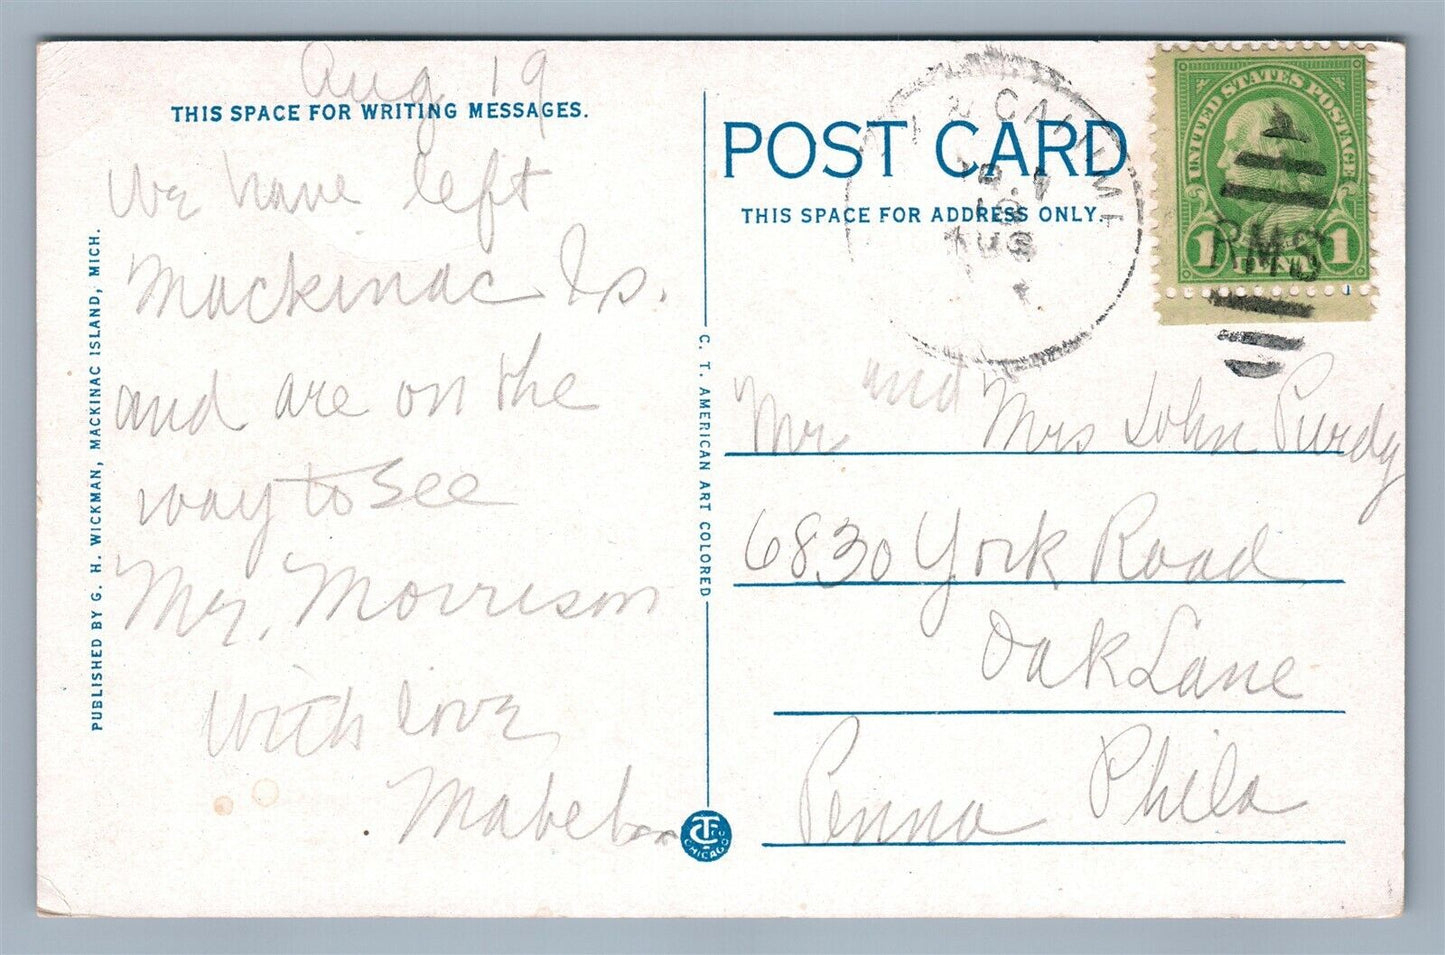 Aug 19
THIS SPACE FOR WRITING MESSAGES.
We have left
Mackinac Is.
and are on the
way to see
Mr. Morrison
With love
Mabel
PUBLISHED BY G. H. WICKMAN, MACKINAC ISLAND, MICH.
C. T. AMERICAN ART COLORED
C T Co
CHICAGO
POST CARD
THIS SPACE FOR ADDRESS ONLY.
AUG
UNITED STATES POSTAGE
1 1
RMS
Mr and Mrs John Purdy
6830 York Road
Oak Lane
Phila
Penna